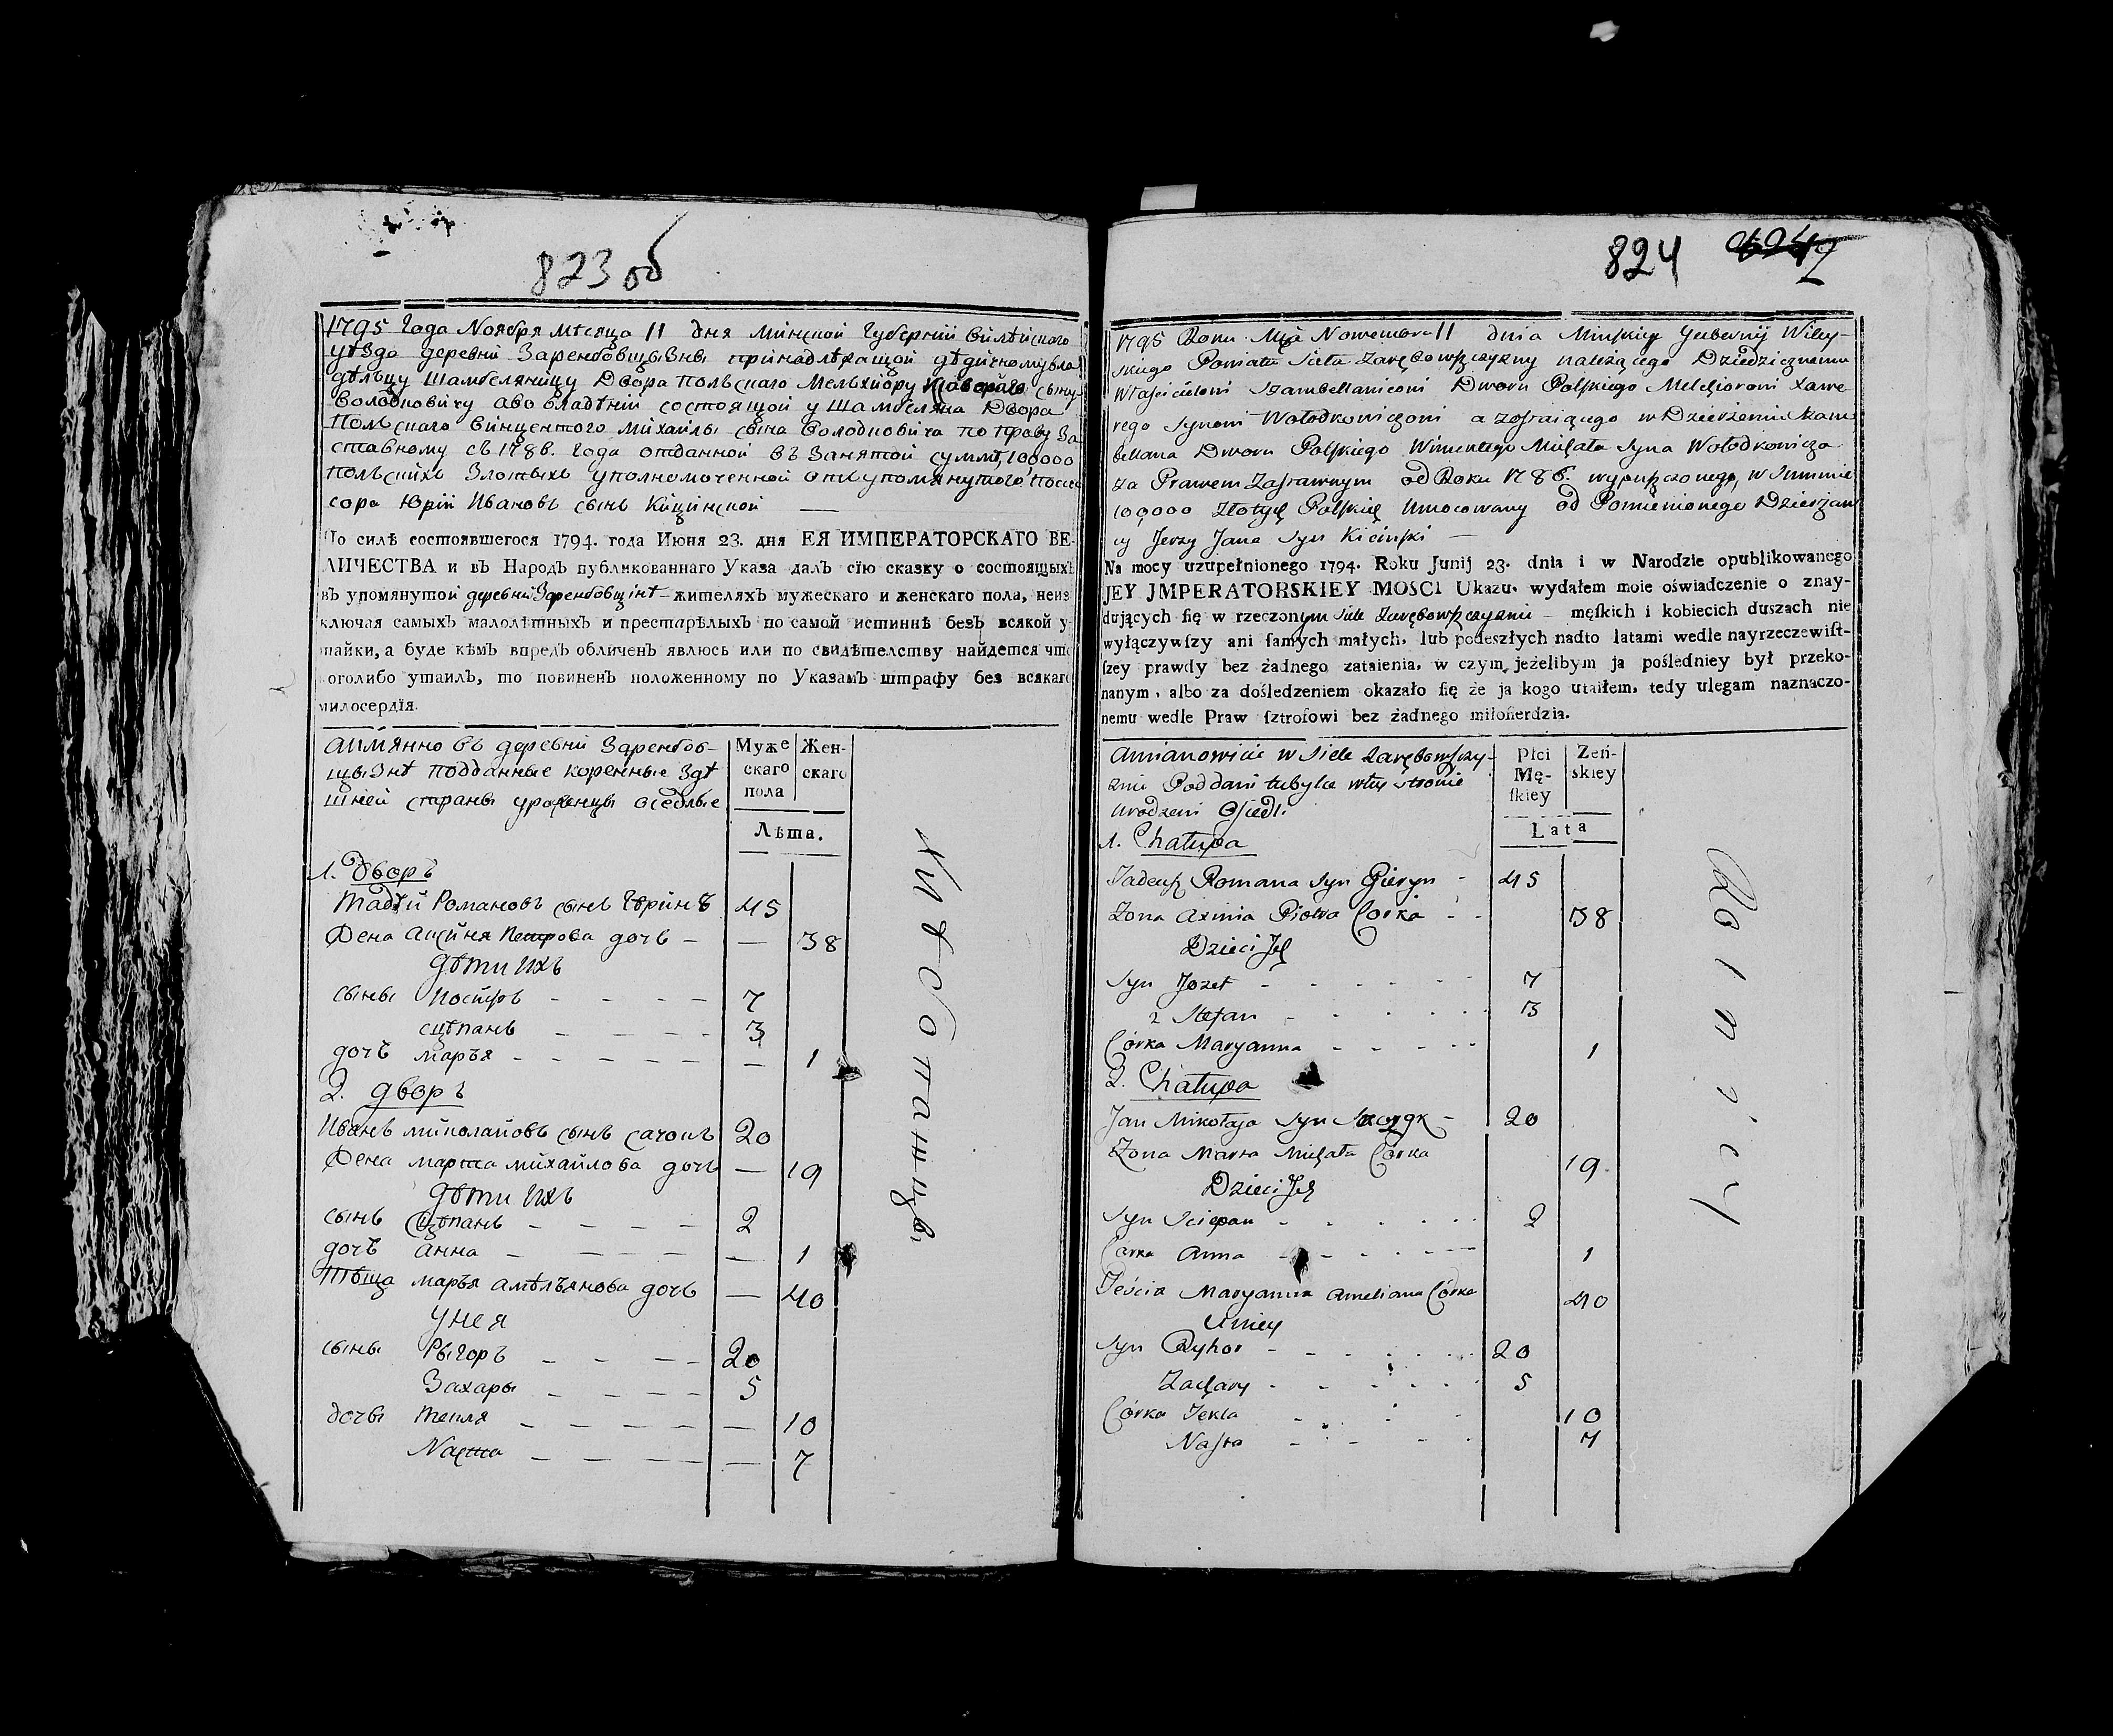 823 об
1795 Года Ноября мѣсяца 11 дня Минской Губерніи Вилѣйского
уѣзда деревни Зарембовщызны принадлѣжащой дѣдичному вла
дѣльцу Шамбеляницу Двора Польскаго Мельхиору сыну
Володковичу а во владѣніи состоящой у Шамбеляна Двора
Польскаго Винцентого Михайлы сына Володковича по праву За
ставному съ 1786. Года отданной въ Занятой суммѣ, 100000
польскихъ Злотыхъ уполномоченной отъ упомянутого Поссе
сора Юрій Ивановъ сынъ Кицинской —
По силѣ состоявшегося 1794. года Июня 23. дня ЕЯ ИМПЕРАТОРСКАГО ВЕ-
ЛИЧЕСТВА и въ Народъ публикованнаго Указа далъ сїю сказку о состоящыхъ
въ упомянутой деревни Зарембовщінѣ — жителяхъ мужескаго и женскаго пола, неис
ключая самыхъ малолѣтныхъ и престарѣлыхъ по самой истиннѣ безъ всякой у-
тайки, а буде кѣмъ впредь обличенъ явлюсь или по свидѣтелству найдется что
коголибо утаилъ, то повиненъ положенному по Указамъ штрафу без всякаго
милосердїя.
Аимянно въ деревни Зарембов-
щызнѣ подданные коренные Здѣ
шней страны уроженцы осѣдлые
Муже
скаго
пола
Жен-
скаго
Лѣта.
1. Дворъ
Тадѣй Романовъ сынъ Гѣринъ 45
Жена Аксиня Петрова дочь — — 38
Дѣти Ихъ
сыны Іосифъ - - - - 7
Сцѣпанъ - - - - 3
дочь Марья - - - - - — 1
2. дворъ
Иванъ Миколаіовъ сынъ Сачокъ 20
Жена Марта Михайлова дочь — 19
Дѣти Ихъ
сынъ Сцѣпанъ - - - - 2
дочь Анна - - - - — 1
Тѣща Марья Амѣльянова дочь — 40
У Нея
сыны Рыгоръ - - - - 20
Захары - - - - 5
дочь Текля - - - - — 10
Nаста - - - - — 7
824
1795 Roku Mca Nowembra 11 dnia Minskiey Gubernij Wiley-
skiego Powiatu Sieła Zarębowszczyzny należącego Dziedzicznemu
Właścicielowi Szambellanicowi Dworu Polskiego Melchiorowi Xawe-
rego synowi Wołodkowiczowi a zostaiącego w Dzierżeniu Szam
bellana Dworu Polskiego Wincentego Michała Syna Wołodkowicza
za Prawem Zastawnym od Roku 1786. wypuszczonego, w Summie
100,000 Złotych Polskich Umocowany od Pomienionego Dzierżaw
cy Jerzy Jana Syn Kicinski —
Na mocy uzupełnionego 1794. Roku Junij 23. dnia i w Narodzie opublikowanego
JEY JMPERATORSKIEY MOSCI Ukazu. wydałem moie oświadczenie o znay-
dujących ſię w rzeczonym Siele Zarębowszczyznie — męſkich i kobiecich duszach nie
wyłączywſzy ani ſamych małych, lub podeszłych nadto latami wedle nayrzeczewiſt-
ſzey prawdy bez żadnego zataienia, w czym jeżelibym ja pośledniey był przeko-
nanym, albo za dośledzeniem okazało ſię że ja kogo utaiłem, tedy ulegam naznaczo-
nemu wedle Praw ſztrofowi bez żadnego miłoſierdzia.
Amianowicie w Siele Zarębowszczy-
znie Poddani tubylce w tey stronie
urodzeni Osiedli
Płci
Mę-
ſkiey
Żeń-
skiey
Lata
1. Chałupa
Tadeusz Romana Syn Gieryn - 45
Zona Axinia Piotra Córka - - 38
Dzieci Ich
Syn Jozef - - - - - 7
2 Stefan - - - - 3
Córka Maryanna - - - - 1
2. Chałupa
Jan Mikołaja Syn - 20
Zona Marta Michała Córka 19
Dzieci Ich
Syn Sciepan - - - - 2
Corka Anna - - - - 1
Teścia Maryanna Ameliana Córka 40
U niey
Syn Ryhor - - - - 20
Zachary - - - - 5
Córka Tekla - - - 10
Nasta - - - - 7